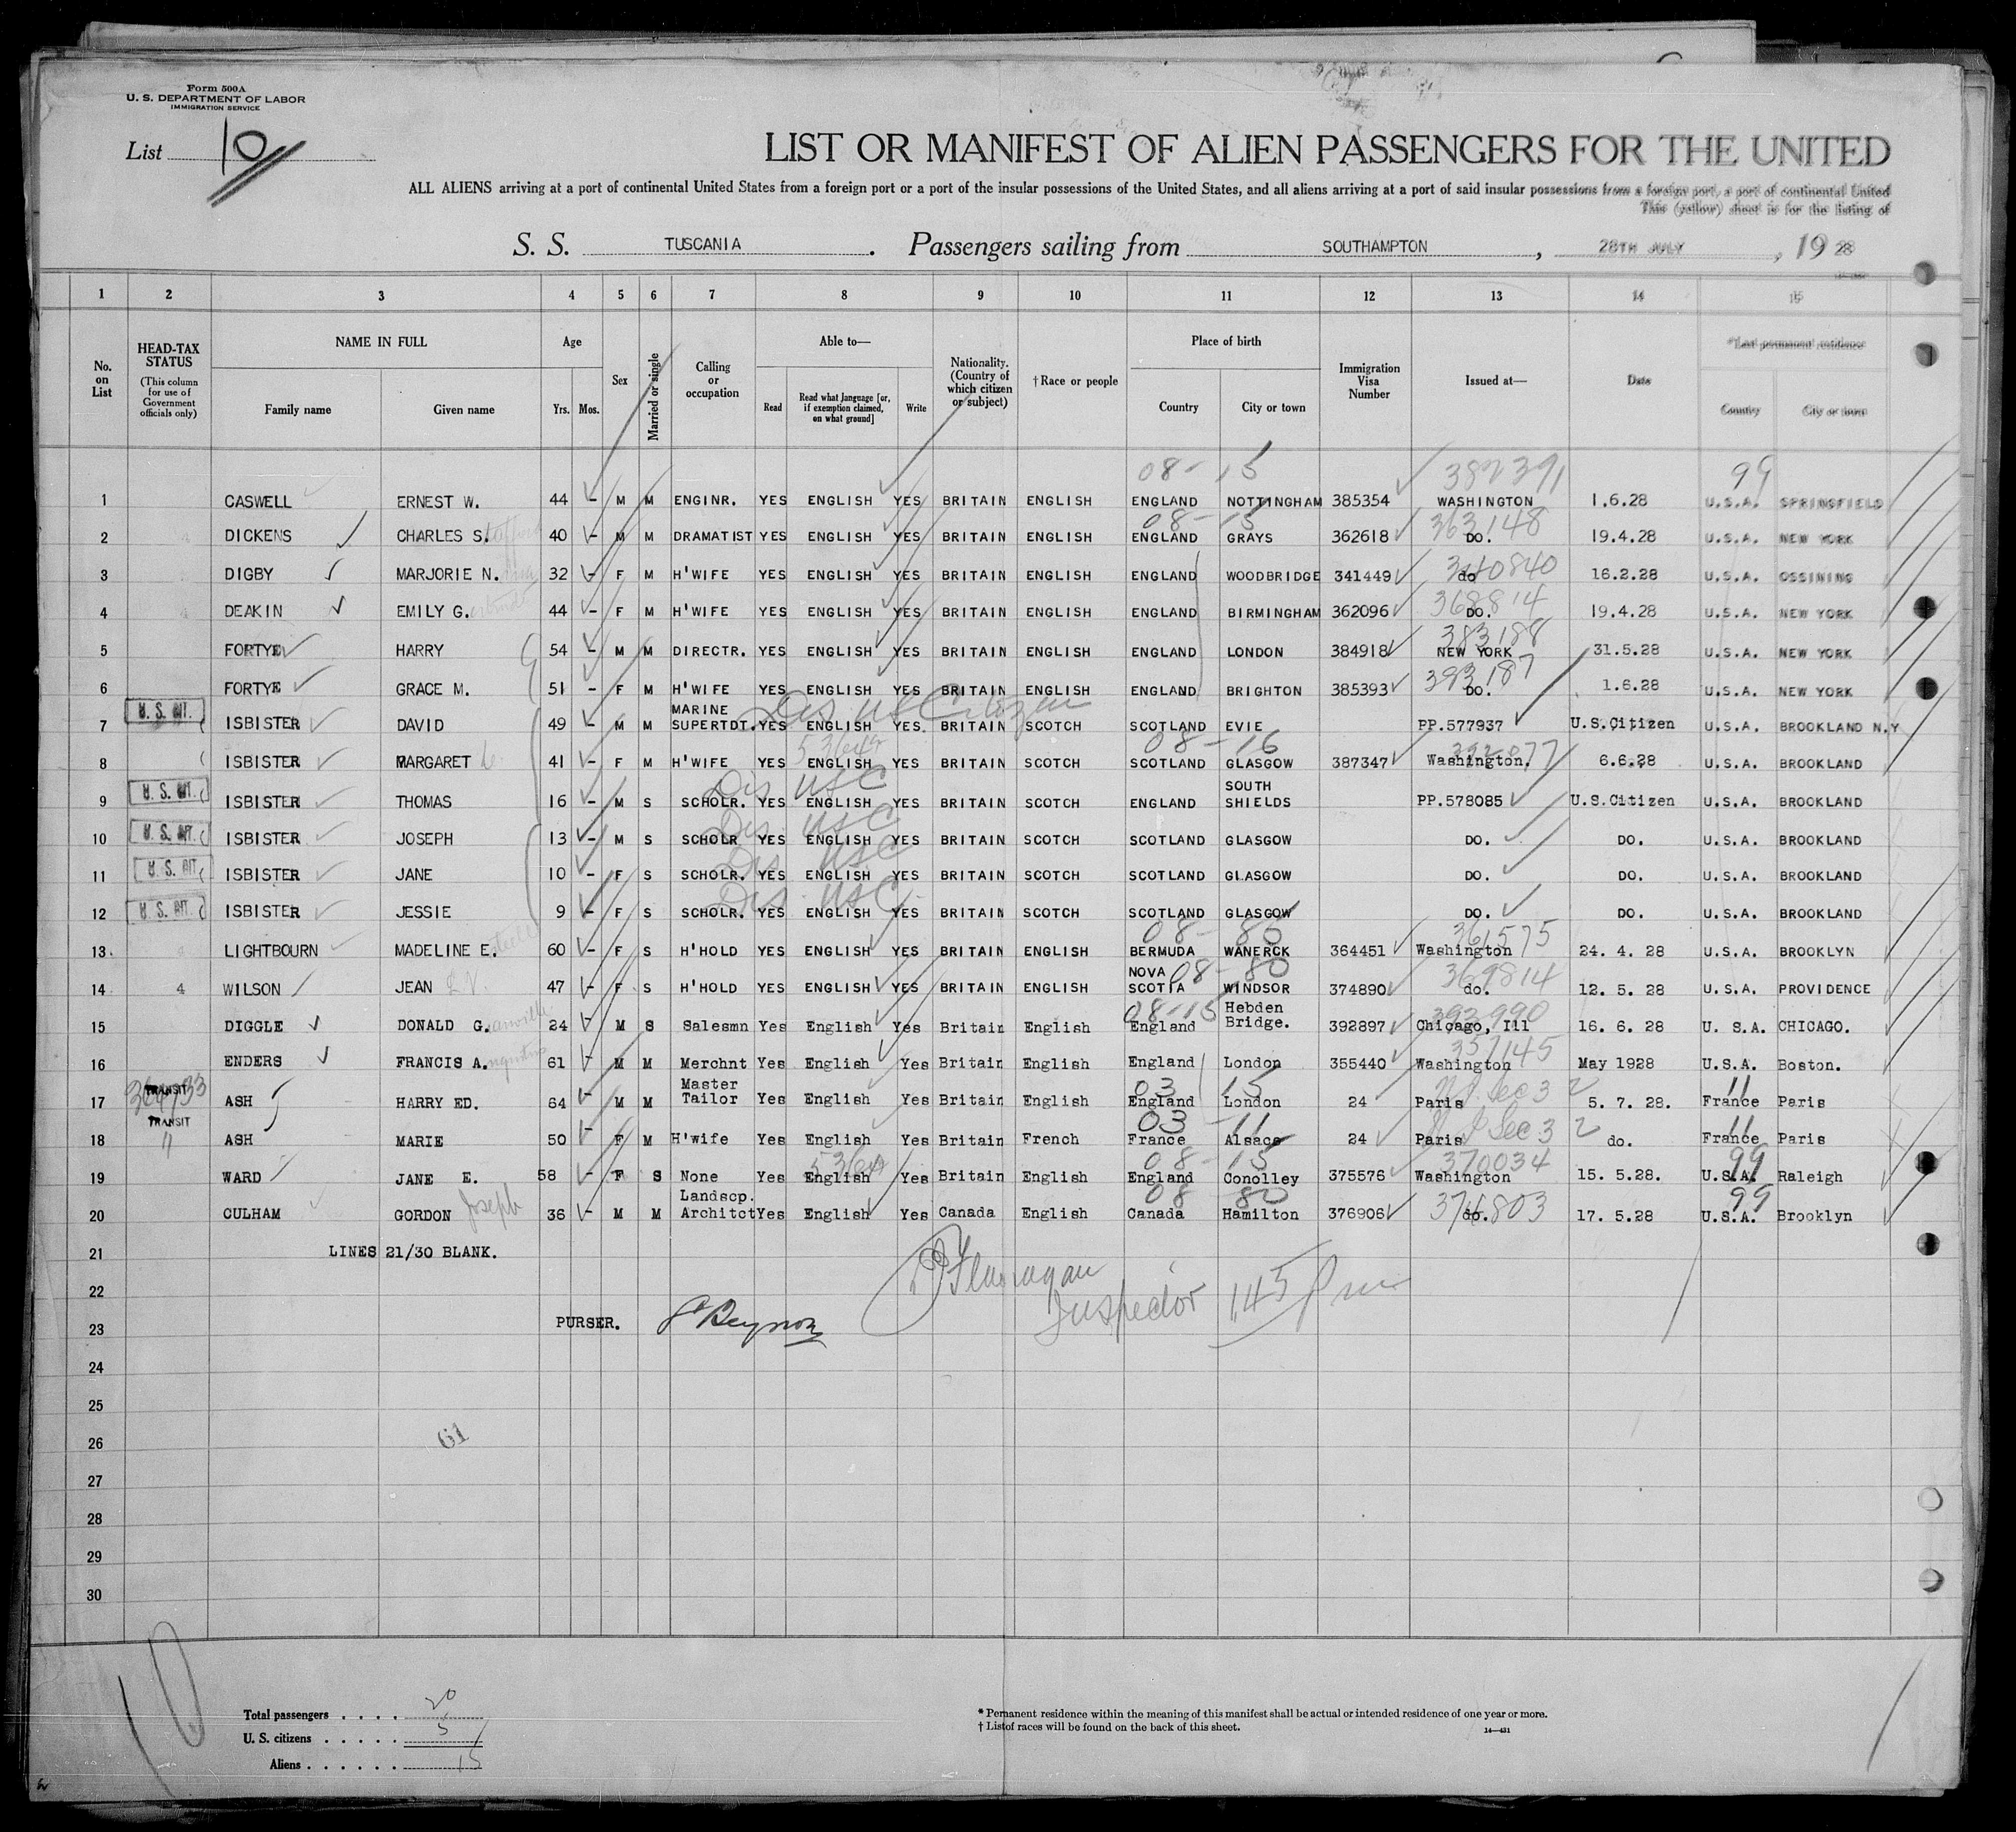 Form 500A
U. S. DEPARTMENT OF LABOR
IMMIGRATION SERVICE
List 10
LIST OR MANIFEST OF ALIEN PASSENGERS FOR THE UNITED
ALL ALIENS arriving at a port of continental United States from a foreign port or a port of the insular possessions of the United States, and all aliens arriving at a port of said insular possessions from a foreign port, a port of continental United
This (yellow) sheet is for the listing of
S. S. TUSCANIA. Passengers sailing from SOUTHAMPTON, 28TH JULY, 19 28
1 2 3 4 5 6 7 8 9 10 11 12 13 14 15
No. on List
HEAD-TAX STATUS (This column for use of Government officials only)
NAME IN FULL Family name Given name
Age Yrs. Mos.
Sex
Married or single
Calling or occupation
Able to— Read Read what language [or, if exemption claimed, on what ground] Write
Nationality. (Country of which citizen or subject)
†Race or people
Place of birth Country City or town
Immigration Visa Number
Issued at—
Date
*Last permanent residence Country City or town
08-15 382391 99
1 CASWELL ERNEST W. 44 - M M ENGINR. YES ENGLISH YES BRITAIN ENGLISH ENGLAND NOTTINGHAM 385354 WASHINGTON 1.6.28 U.S.A. SPRINGFIELD
08-15 363148
2 DICKENS CHARLES S. 40 - M M DRAMATIST YES ENGLISH YES BRITAIN ENGLISH ENGLAND GRAYS 362618 DO. 19.4.28 U.S.A. NEW YORK
3 DIGBY MARJORIE N. 32 - F M H'WIFE YES ENGLISH YES BRITAIN ENGLISH ENGLAND WOODBRIDGE 341449 do 16.2.28 U.S.A. OSSINING
368814
4 DEAKIN EMILY G. 44 - F M H'WIFE YES ENGLISH YES BRITAIN ENGLISH ENGLAND BIRMINGHAM 362096 DO. 19.4.28 U.S.A. NEW YORK
383188
5 FORTYE HARRY 54 - M M DIRECTR. YES ENGLISH YES BRITAIN ENGLISH ENGLAND LONDON 384918 NEW YORK 31.5.28 U.S.A. NEW YORK
383187
6 FORTYE GRACE M. 51 - F M H'WIFE YES ENGLISH YES BRITAIN ENGLISH ENGLAND BRIGHTON 385393 DO. 1.6.28 U.S.A. NEW YORK
U. S. CIT. Dis US Citizen
7 ISBISTER DAVID 49 - M M MARINE SUPERTDT. YES ENGLISH YES BRITAIN SCOTCH SCOTLAND EVIE PP.577937 U.S.Citizen U.S.A. BROOKLAND N.Y
08-16
8 ISBISTER MARGARET 41 - F M H'WIFE YES ENGLISH YES BRITAIN SCOTCH SCOTLAND GLASGOW 387347 Washington. 6.6.28 U.S.A. BROOKLAND
U. S. CIT. Dis USC
9 ISBISTER THOMAS 16 - M S SCHOLR. YES ENGLISH YES BRITAIN SCOTCH ENGLAND SOUTH SHIELDS PP.578085 U.S.Citizen U.S.A. BROOKLAND
U. S. CIT. Dis. USC
10 ISBISTER JOSEPH 13 - M S SCHOLR YES ENGLISH YES BRITAIN SCOTCH SCOTLAND GLASGOW DO. DO. U.S.A. BROOKLAND
U. S. CIT. Dis. USC
11 ISBISTER JANE 10 - F S SCHOLR. YES ENGLISH YES BRITAIN SCOTCH SCOTLAND GLASGOW DO. DO. U.S.A. BROOKLAND
U. S. CIT. Dis. USC
12 ISBISTER JESSIE 9 - F S SCHOLR. YES ENGLISH YES BRITAIN SCOTCH SCOTLAND GLASGOW DO. DO. U.S.A. BROOKLAND
08-80 361575
13. LIGHTBOURN MADELINE E. 60 - F S H'HOLD YES ENGLISH YES BRITAIN ENGLISH BERMUDA WANERCK 364451 Washington 24. 4. 28 U.S.A. BROOKLYN
08-80 369814
14 4 WILSON JEAN 47 - F S H'HOLD YES ENGLISH YES BRITAIN ENGLISH NOVA SCOTIA WINDSOR 374890 do. 12. 5. 28 U.S.A. PROVIDENCE
08-15 393990
15 DIGGLE DONALD G. 24 - M S Salesmn Yes English Yes Britain English England Hebden Bridge. 392897 Chicago, Ill 16. 6. 28 U. S.A. CHICAGO.
357145
16 ENDERS FRANCIS A. 61 - M M Merchnt Yes English Yes Britain English England London 355440 Washington May 1928 U.S.A. Boston.
TRANSIT 03 15 Sec 3 2 11
17 ASH HARRY ED. 64 - M M Master Tailor Yes English Yes Britain English England London 24 Paris 5. 7. 28. France Paris
TRANSIT " 03-11 Sec 3 2 11
18 ASH MARIE 50 - F M H'wife Yes English Yes Britain French France Alsace 24 Paris do. France Paris
08-15 370034 99
19 WARD JANE E. 58 - F S None Yes English Yes Britain English England Conolley 375576 Washington 15. 5.28. U.S.A. Raleigh
08 80 99
20 CULHAM GORDON Joseph 36 - M M Landscp. Architct Yes English Yes Canada English Canada Hamilton 376906 do. 17. 5.28 U.S.A. Brooklyn
21 LINES 21/30 BLANK.
22 Flanagan
Inspector 1,45 pm
23 PURSER.
24
25
26 61
27
28
29
30
10
Total passengers . . . . 20
U. S. citizens . . . . . 5
Aliens . . . . . . 15
* Permanent residence within the meaning of this manifest shall be actual or intended residence of one year or more.
† List of races will be found on the back of this sheet.
14—431